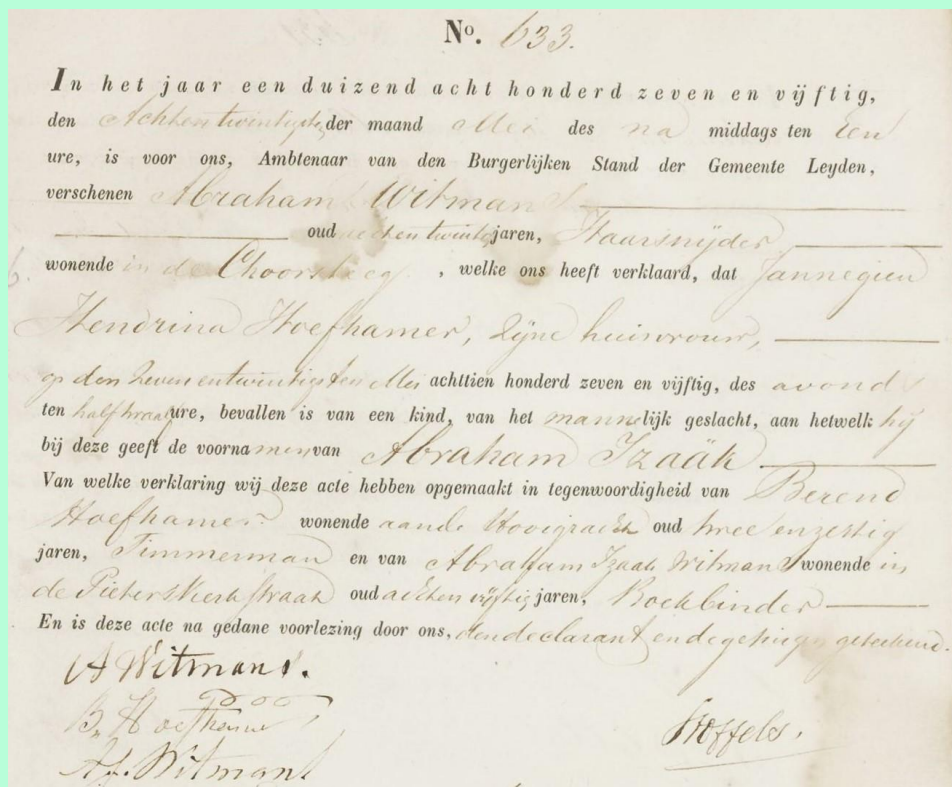 No. 633.
In het jaar een duizend acht honderd zeven en vijftig,
den Achtentwintigste der maand Mei des na middags ten Een
ure, is voor ons, Ambtenaar van den Burgerlijken Stand der Gemeente Leyden,
verschenen Abraham Witmans
oud achtentwintig jaren, Haarsnijder
wonende in de Choorsteeg, welke ons heeft verklaard, dat Jannegien
Hendrina Hoefhamer, Zijne huisvrouw,
op den Zevenentwintigsten Mei achttien honderd zeven en vijftig, des avonds
ten half twaalf ure, bevallen is van een kind, van het mannelijk geslacht, aan hetwelk hij
bij deze geeft de voornamen van Abraham Izaäk
Van welke verklaring wij deze acte hebben opgemaakt in tegenwoordigheid van Berend
Hoefhamer wonende aan de Hooigracht oud tweeenzestig
jaren, Timmerman en van Abraham Izaak Witmans wonende in
de Pieterskerkstraat oud achtenvijftig jaren, Boekbinder
En is deze acte na gedane voorlezing door ons, den declarant en de getuigen geteekend.
A Witmans.
B. Hoefhamer
Stoffels.
A. J. Witmans